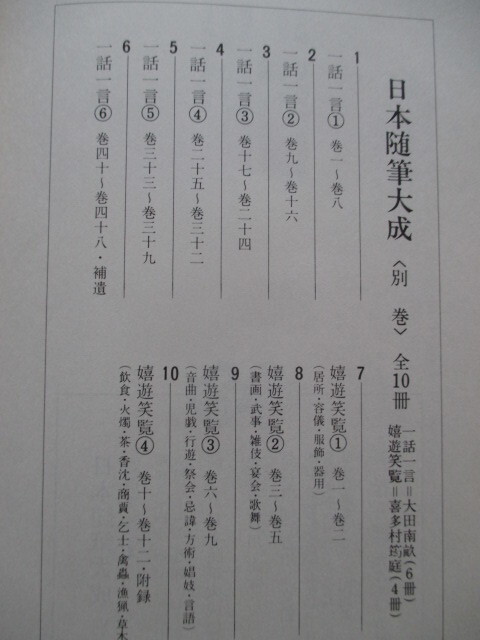 日本随筆大成〈別巻〉全10冊
一話一言=大田南畝(6冊)
嬉遊笑覧=喜多村筠庭(4冊)
1
一話一言① 巻一～巻八
2
一話一言② 巻九～巻十六
3
一話一言③ 巻十七～巻二十四
4
一話一言④ 巻二十五～巻三十二
5
一話一言⑤ 巻三十三～巻三十九
6
一話一言⑥ 巻四十～巻四十八・補遺
7
嬉遊笑覧① 巻一～巻二
(居所・容儀・服飾・器用)
8
嬉遊笑覧② 巻三～巻五
(書画・武事・雑伎・宴会・歌舞)
9
嬉遊笑覧③ 巻六～巻九
(音曲・児戯・行遊・祭会・忌諱・方術・娼妓・言語)
10
嬉遊笑覧④ 巻十～巻十二・附録
(飲食・火燭・茶・香沈・商賈・乞士・禽蟲・漁猟・草木